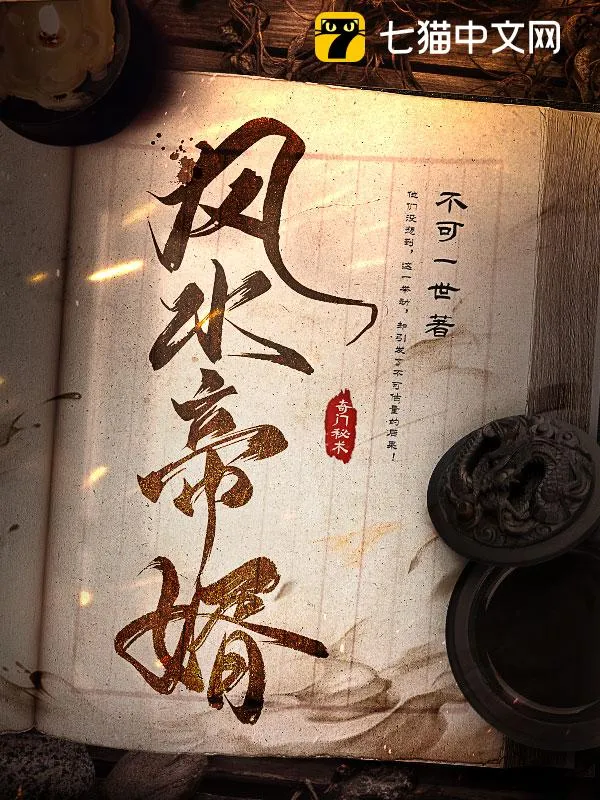 七猫中文网
风水帝婿
不可一世著
他们没想到，这一举动，却引发了不可估量的后果！
奇门秘术